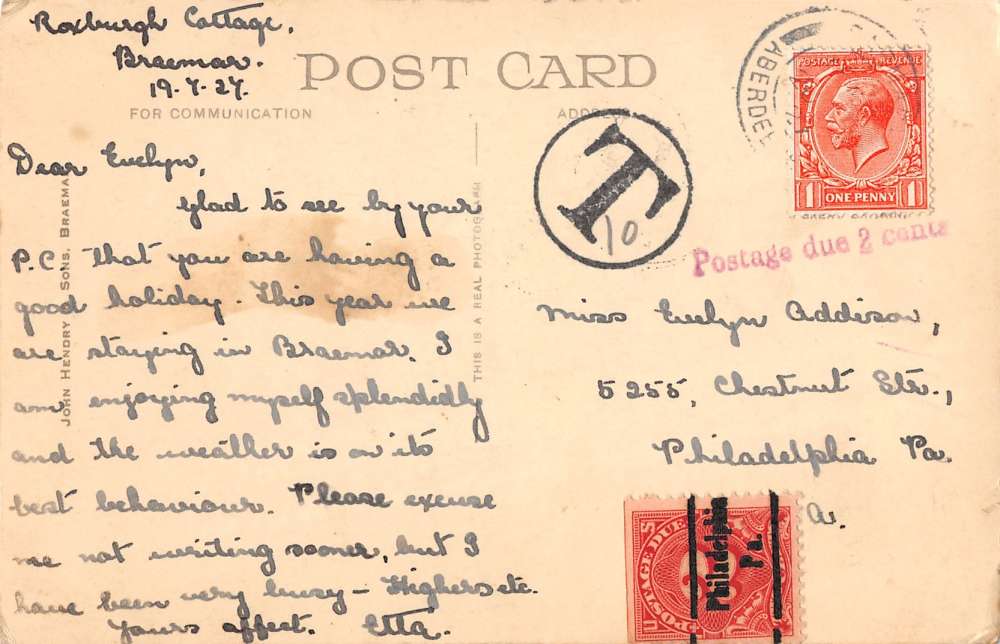 Roxburgh Cottage,
Braemar.
19.7.27.
POST CARD
FOR COMMUNICATION
Dear Evelyn,
Glad to see by your
P.C. that you are having a
good holiday. This year we
are staying in Braemar. I
am enjoying myself splendidly
and the weather is on its
best behaviour. Please excuse
me not writing sooner, but I
have been very busy – Highers etc.
Yours affect. Etta.
JOHN HENDRY & SONS, BRAEMAR
THIS IS A REAL PHOTOGRAPH
T
10
ABERDEE
POSTAGE REVENUE
1 ONE PENNY 1
Postage due 2 cents
Miss Evelyn Addison,
5255, Chestnut Str.,
Philadelphia Pa.
A.
Philadelphia
Pa.
POSTAGE DUE